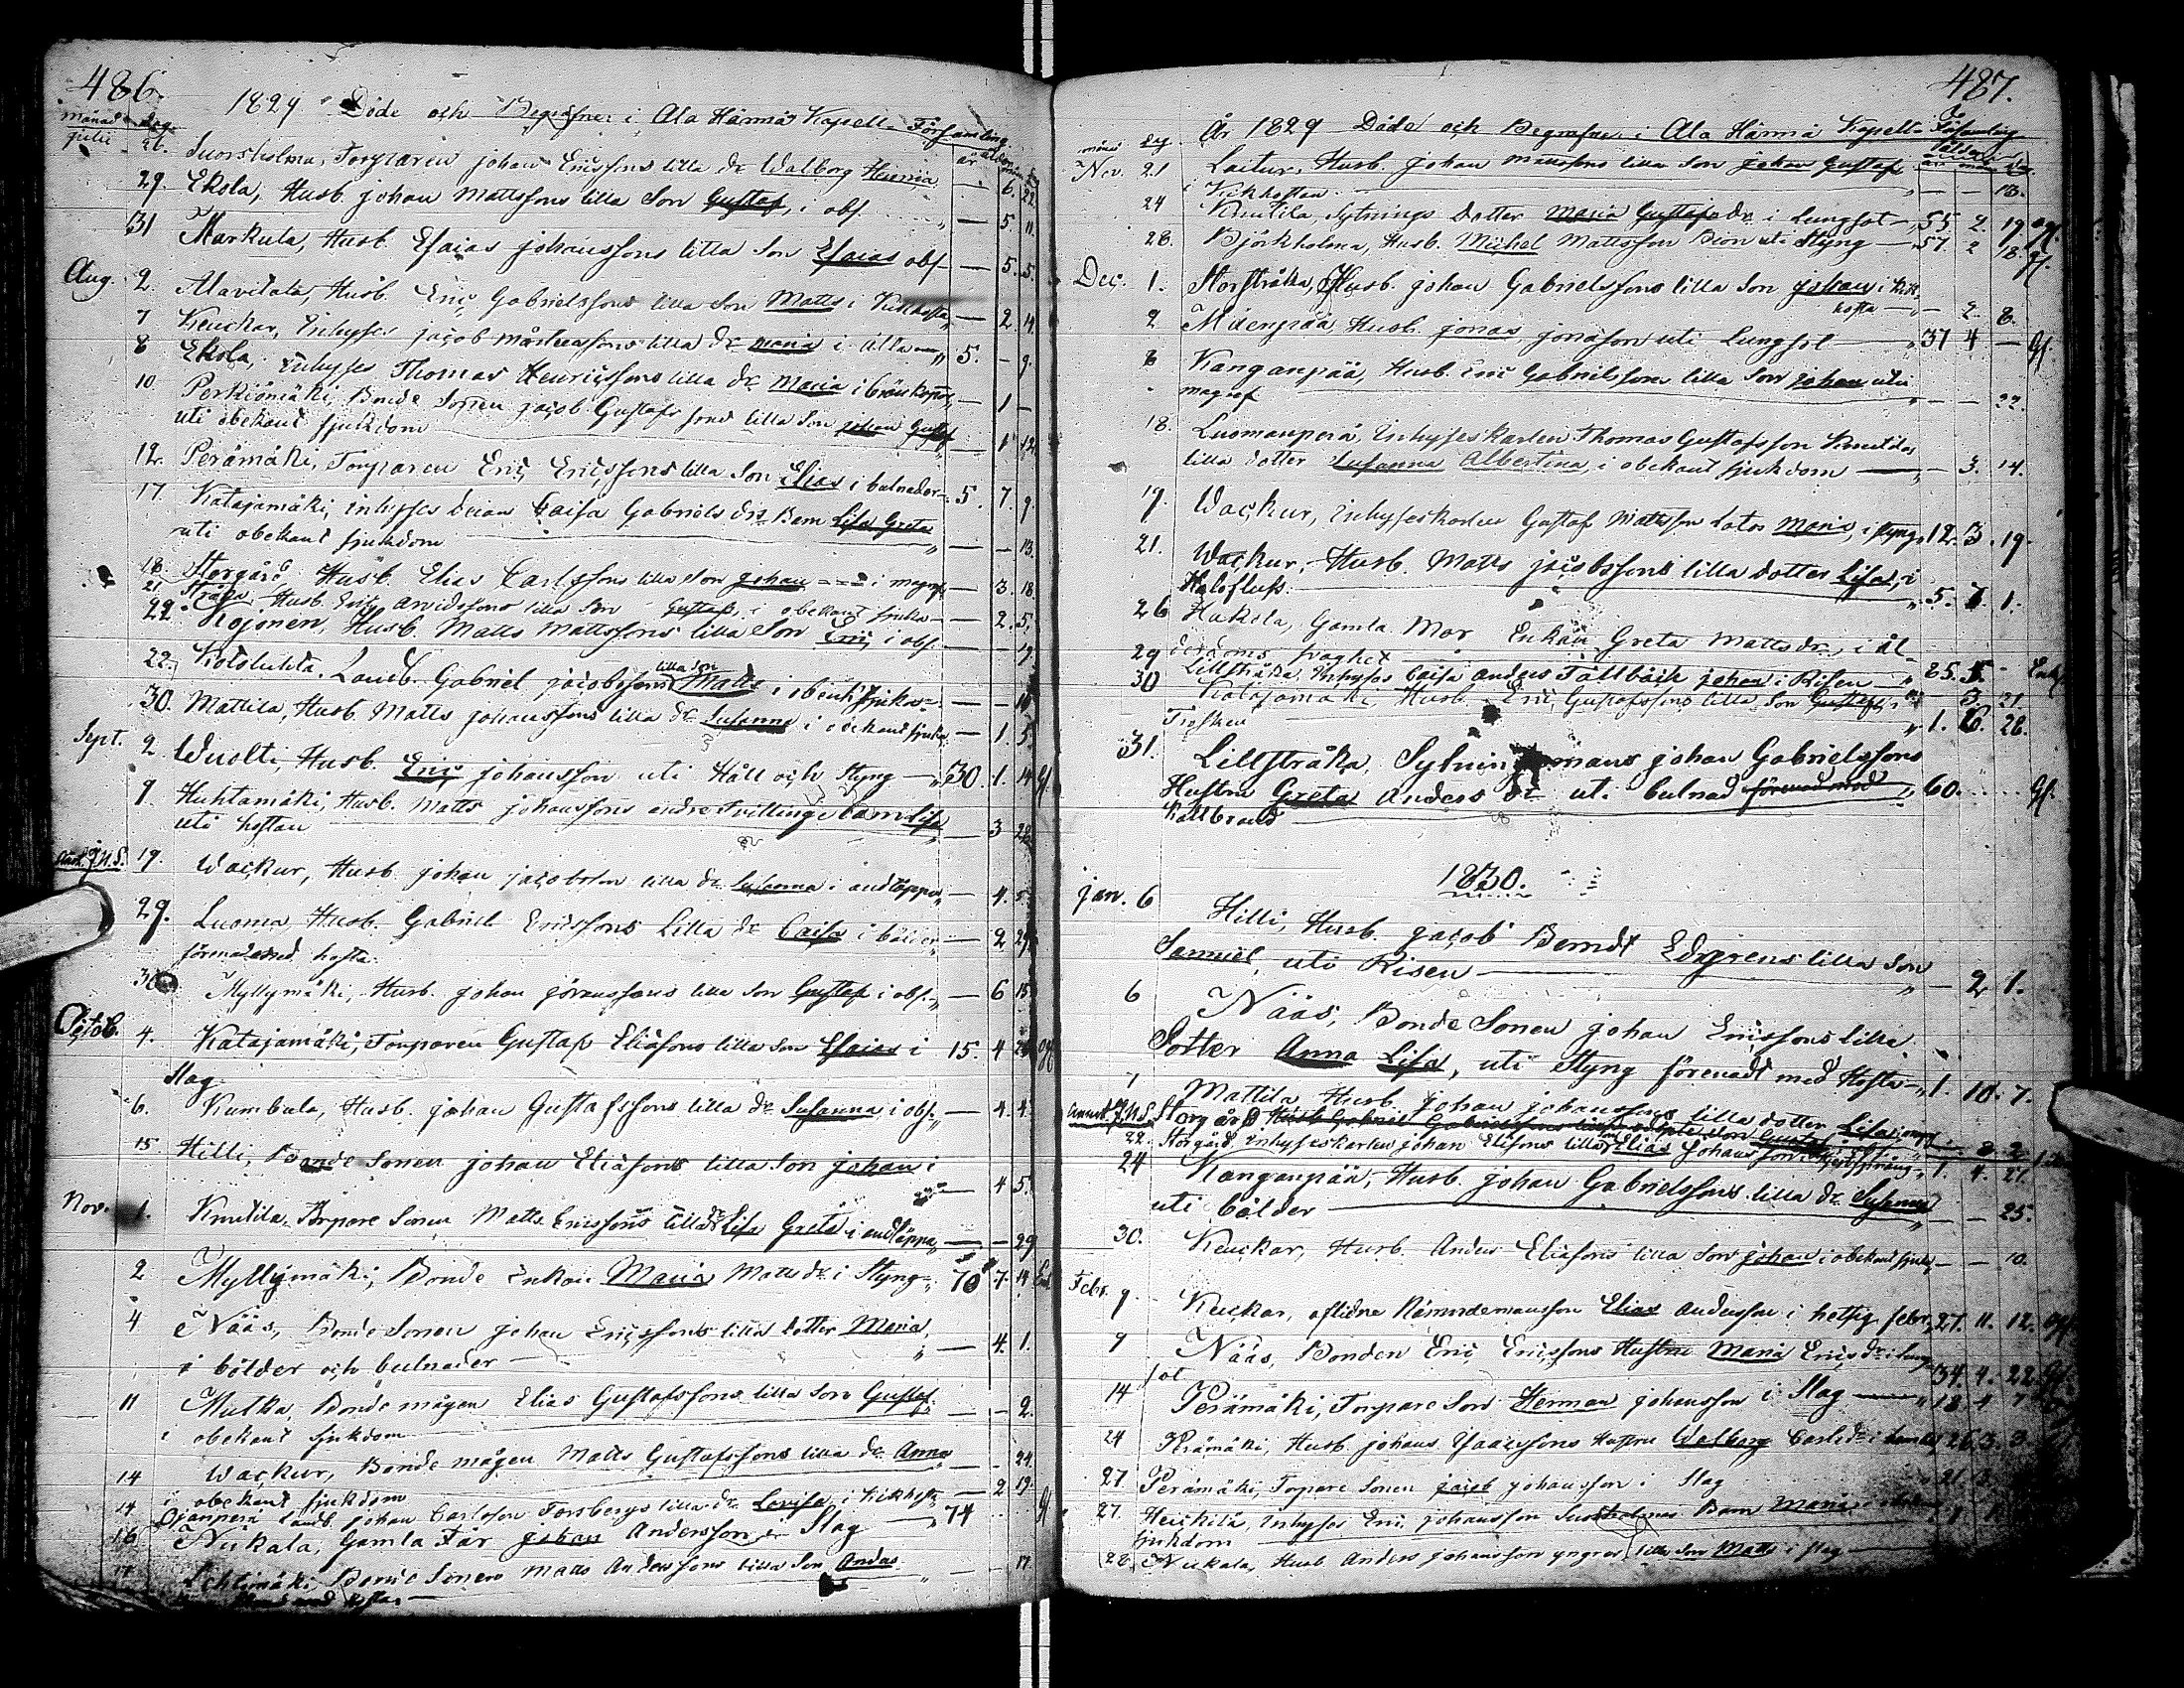 486.
1829 Döde och Begrafne i Ala Härmä Kapell Församling.
månad dag. ålder år mån. dag
julii 26. Suorsholma, Torparen johan Ericssons lilla dr Walborg — 6. 22.
29. Ekola, Husb. johan Mattssons lilla Son Gustaf, i obs. — 5. 11.
31 Markula, Husb. Esaias johanssons lilla Son Esaias obs — 5. 5.
Aug. 2. Alavitala, Husb. Eric Gabrielssons lilla Son Matts i Kikhosta — 2 4.
7 Keuckar, Inhyses jacob lilla dr maria i ålta — 5. — 9.
8 Ekola, Inhyses Thomas Henricssons lilla dr Maria i — 1 —
10 Perkiömäki, Bonde Sonen jacob Gustafssons lilla Son johan Gustaf
uti obekant sjukdom — 1 12.
12. Perämäki, Torparen Eric Ericssons lilla Son Elias i bulnader 5. 7. 9.
17. Katajamäki, inhyses Caisa Gabriels dr Barn Lisa Greta
uti obekant sjukdom — — 13.
18. Storgård Husb. Elias Carlssons lilla Son johan i magref — 3. 18.
21 Husb. Eric Arvidssons lilla Son Gustaf i obekant sjukd — 2. 5.
22. Kojonen, Husb. Matts Mattssons lilla Son Eric i obs. — — 19.
22. Kotslukta, Landb. Gabriel jacobssons lilla son Matts i obekt sjukd — — 10
30. Mattila, Husb. Matts johanssons lilla dr Susanna i obekant sjukd — 1. 5.
Sept. 2 Wuolti, Husb. Eric johansson uti Håll och Styng — 30. 1. 14 Gf.
9. Huhtamäki, Husb. Matts johanssons andre tvillinge barn Lisa
uti hostan — 3 28
J.N.S. 19. Wackur, Husb. johan jacobsson lilla dr Susanna i andtäppa — 4. 5.
29. Luoma, Husb. Gabriel Ericssons Lilla dr Caisa i bölder — 2 29
förenad med hosta.
30 Myllymäki, Husb. johan göranssons lilla Son Gustaf i obs. — 6 15
Octob. 4. Katajamäki, Torparen Gustaf Eliæsons lilla Son Esaias i 15. 4 26 og
Slag.
6. Kumbula, Husb. johan Gustafssons lilla dr Susanna i obs. — 4. 4.
15. Hilli, Bonde Sonen johan Eliæsons lilla Son johan i
— 4 5.
Nov. 1. Knutila, Torpare Sonen Matts Ericssons lilla dr Lisa Greta i andtäppa — — 29
2 Myllymäki, Bonde Enkan Maria Matts dr i Styng — 70 7. 14 Enk
4 Nääs, Bonde Sonen johan Ericssons lilla dotter Maria,
i bölder och bulnader — 4. 1.
11 Mutka, Bonde mågen Elias Gustafssons lilla Son Gustaf
i obekant sjukdom — — 2.
14 Wackur, Bonde mågen Matts Gustafssons lilla dr Anna — 24.
i obekant sjukdom
14 Ojanperä Landb. johan Carlsson Forsbergs lilla dr Lovisa, i kikhost — 2 19.
16 Nukala, Gamla Far johan Andersson i Slag — 74 Gf
17 Lehtimäki, Bonde Sonen Matts Anderssons lilla Son Anders — 17
487.
År 1829 Döde och Begrafne i Ala Härmä Kapell Församling
månad dag. ålder år mån dag
Nov. 21 Laitur, Husb. johan Mattssons lilla Son johan Gustaf
i Kikhostan — — 13.
24 Knutila, Sytnings dotter Maria Gustafs dr i Lungsot — 55. 2. 19. ogf.
28. Björkholma, Husb. Michel Mattsson Biön uti Styng — 57. 2 18. gf.
Dec. 1. Storstråka, Husb. johan Gabrielssons lilla Son johan i kik
hosta — — 2. 8.
2 Mäenpää Husb. jonas jonasson uti Lungsot — 37 4 — Gf
8 Kanganpää, Husb. Eric Gabrielssons lilla Son johan uti
magref — — 22.
18. Luomanperä, Inhyseskarlen Thomas Gustafsson Knutilas
lilla dotter Susanna Albertina, i obekant sjukdom — 3. 14.
19. Wackur, Inhyseskarlen Gustaf Mattssons dotter Maria, i styng 12. 3. 19.
21. Wackur, Husb. Matts jacobssons lilla dotter Lisa, i
Halsfluss. — 5. 7. 1.
26 Hakola, Gamla Mor Enkan Greta Matts dr, i ål-
derdoms svaghet — 85. 5. — Enk.
29 Lillstråka Inhyses Caisa Anders Tallbäck johan i Risen — 3. 21.
30 Katajamäki, Husb. Eric Gustafssons lilla Son Gustaf, i
Trosken — 1. 6. 28.
31. Lillstråka, Sytningsmans johan Gabrielssons
Hustru Greta Anders dr uti bulnad förenad med 60. Gf.
Kallbrand
1830.
jan. 6 Hilli, Husb. jacob Berndt Edgrens lilla Son
Samuel, uti Risen — 2 1.
6 Nääs, Bonde Sonen johan Ericssons lilla
Dotter Anna Lisa, uti Styng förenadt med Hosta — 1. 10. 7.
Mattila Husb. johan johanssons lilla dotter Lisa
J.N.S. Storgård Husb Gabriel Gabrielssons Son Gustaf
22. Storgård, Inhyseskarlen johan Elissons lilla son Elias Johansson 1. 4. 21.
24 Kanganpää, Husb. johan Gabrielssons lilla dr Susanna
uti bölder — — 25.
30. Keuckar, Husb. Anders Eliæsons lilla Son johan i obekant sjukd — — 10.
Febr. 9 Keuckar, aflidne Nämndemansson Elias Andersson i hetsig feber 27. 11. 12. ogf
9 Nääs, Bonden Eric Ericssons Hustru Maria Erics dr i Lung-
sot 34. 4. 22. Gf.
14 Perämäki, Torpare Son Herman johansson i Slag — 13 4 7
24 Perämäki, Husb. johans Hustru Walborg Carls dr i 26. 3. 3.
27. Perämäki, Torpare Sonen jacob johansson i Slag 21.
27. Heickilä, Inhyses Eric johansson Suorsholmas Barn Maria, i
sjukdom
28. Nukala, Husb Anders johansson yngres lilla Son Matts i slag